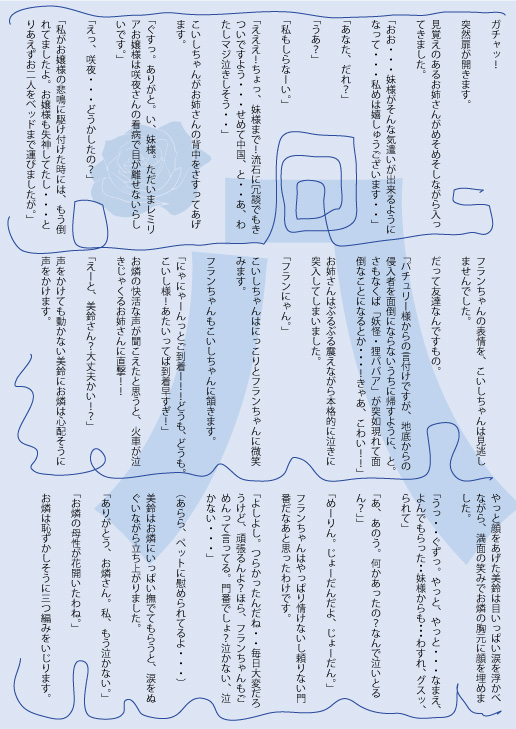 ガチャッ!
突然扉が開きます。
見覚えのあるお姉さんがめそめそしながら入っ
てきました。
「おお・・・妹様がそんな気遣いが出来るように
なって・・・私めは嬉しゅうございます・・」
「あなた、だれ?」
「うあ?」
「私もしらなーい。」
「えええ!ちょっ、妹様まで!流石に冗談でもき
ついですよう・・・せめて中国、と・・あ、わ
たしマジ泣きしそう・・」
こいしちゃんがお姉さんの背中をさすってあげ
ます。
「ぐすっ。ありがと。い、妹様。ただいまレミリ
アお嬢様は咲夜さんの看病で目が離せないらし
いです。」
「えっ、咲夜・・・どうかしたの?」
「私がお嬢様の悲鳴に駆け付けた時には、もう倒
れてましたよ。お嬢様も失神してたし・・・と
りあえずお二人をベッドまで運びましたが。」
フランちゃんの表情を、こいしちゃんは見逃し
ませんでした。
だって友達なんですもの。
「パチュリー様からの言付けですが、地底からの
侵入者を面倒にならないうちに帰すように、と。
さもなくば「妖怪・狸ババア」が突如現れて面
倒なことになるとか・・・!きゃあ、こわい!!」
お姉さんはぶるぶる震えながら本格的に泣きに
突入してしまいました。
「フランにゃん。」
こいしちゃんはにっこりとフランちゃんに微笑
みます。
フランちゃんもこいしちゃんに頷きます。
「にゃにゃーんっとご到着ー!!どうも、どうも。
こいし様!あたいってば到着早すぎ!」
お燐の快活な声が聞こえたと思うと、火車が泣
きじゃくるお姉さんに直撃!!
「えーと、美鈴さん?大丈夫かい!?」
声をかけても動かない美鈴にお燐は心配そうに
声をかけます。
やっと顔をあげた美鈴は目いっぱい涙を浮かべ
ながら、満面の笑みでお燐の胸元に顔を埋めま
した。
「うっ・・ぐすっ。やっと、やっと・・・なまえ、
よんでもらった・・妹様からも・・わすれ、グスッ、
られて」
「あ、あのう。何かあったの?なんで泣いとる
ん?」
「めーりん。じょーだんだよ、じょーだん。」
フランちゃんはやっぱり情けないし頼りない門
番だなあと思ったわけです。
「よしよし。つらかったんだね・・毎日大変だろ
うけど、頑張るんよ?ほら、フランちゃんもご
めんって言ってる。門番でしょ?泣かない、泣
かない・・・」
(あらら、ペットに慰められてるよ・・・・)
美鈴はお燐にいっぱい撫でてもらうと、涙をぬ
ぐいながら立ち上がりました。
「ありがとう、お燐さん。私、もう泣かない。」
「お燐の母性が花開いたわね。」
お燐は恥ずかしそうに三つ編みをいじります。